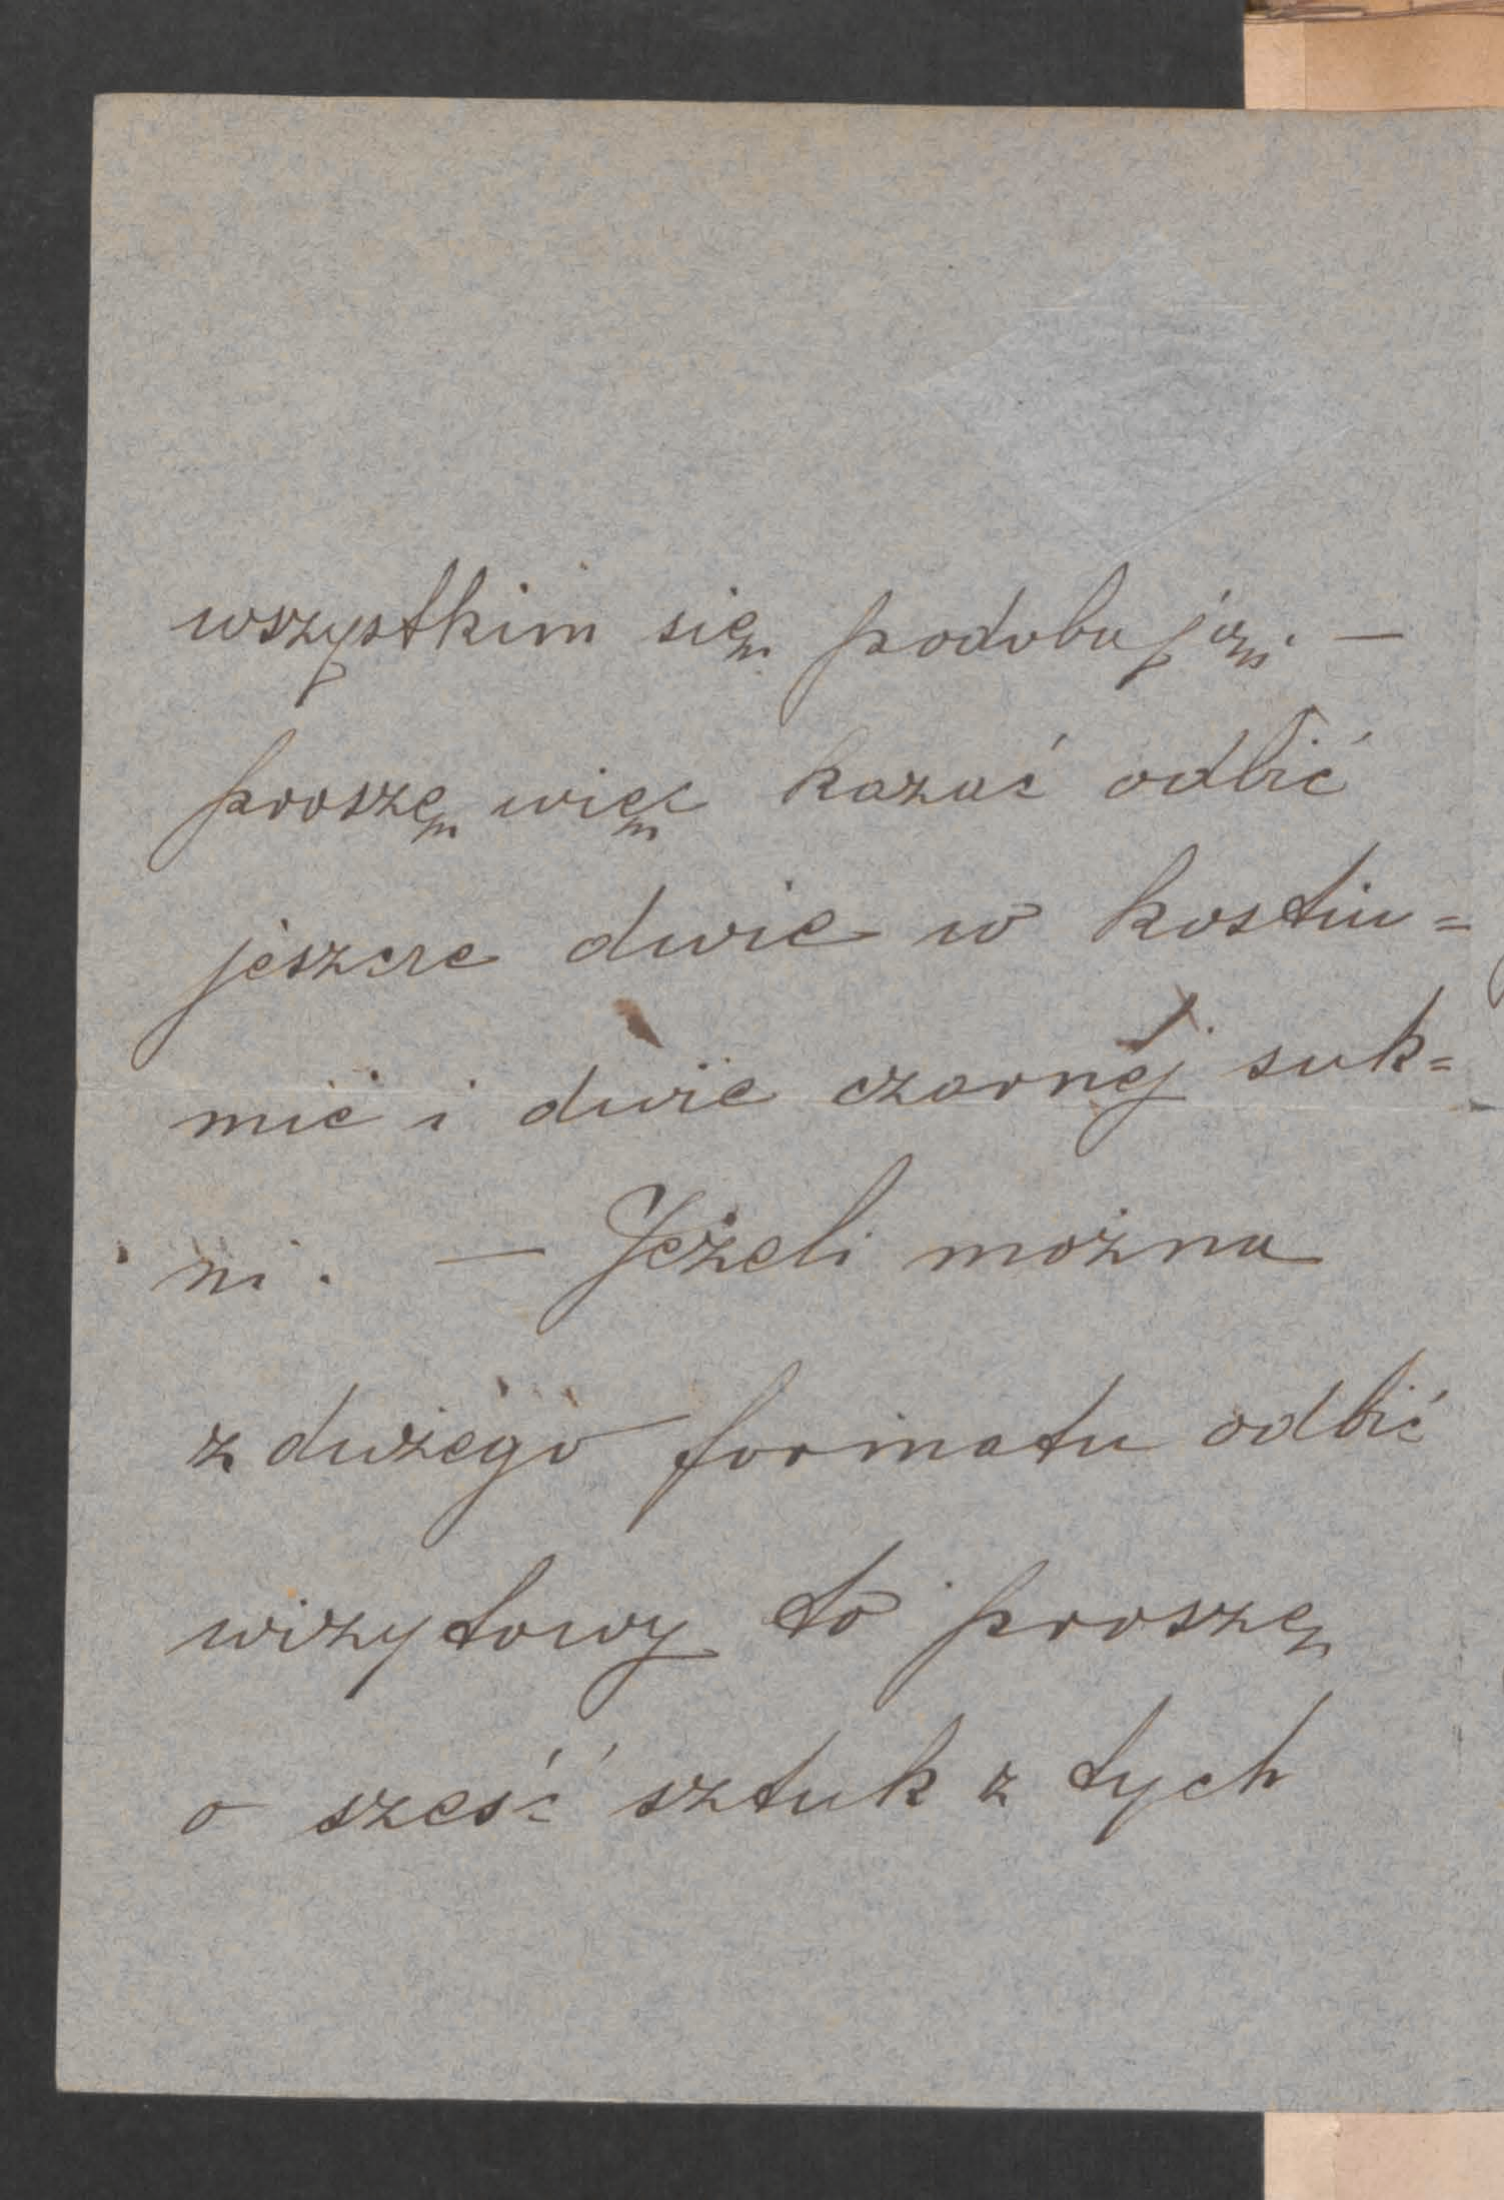 wszystkim się podobają. —
proszę więc kazać odbić
jeszcze dwie w kostiu=
mie i dwie czarnej suk=
ni. — Jeżeli można
z dużego formatu odbić
wizytowy to proszę
o sześć sztuk z tych